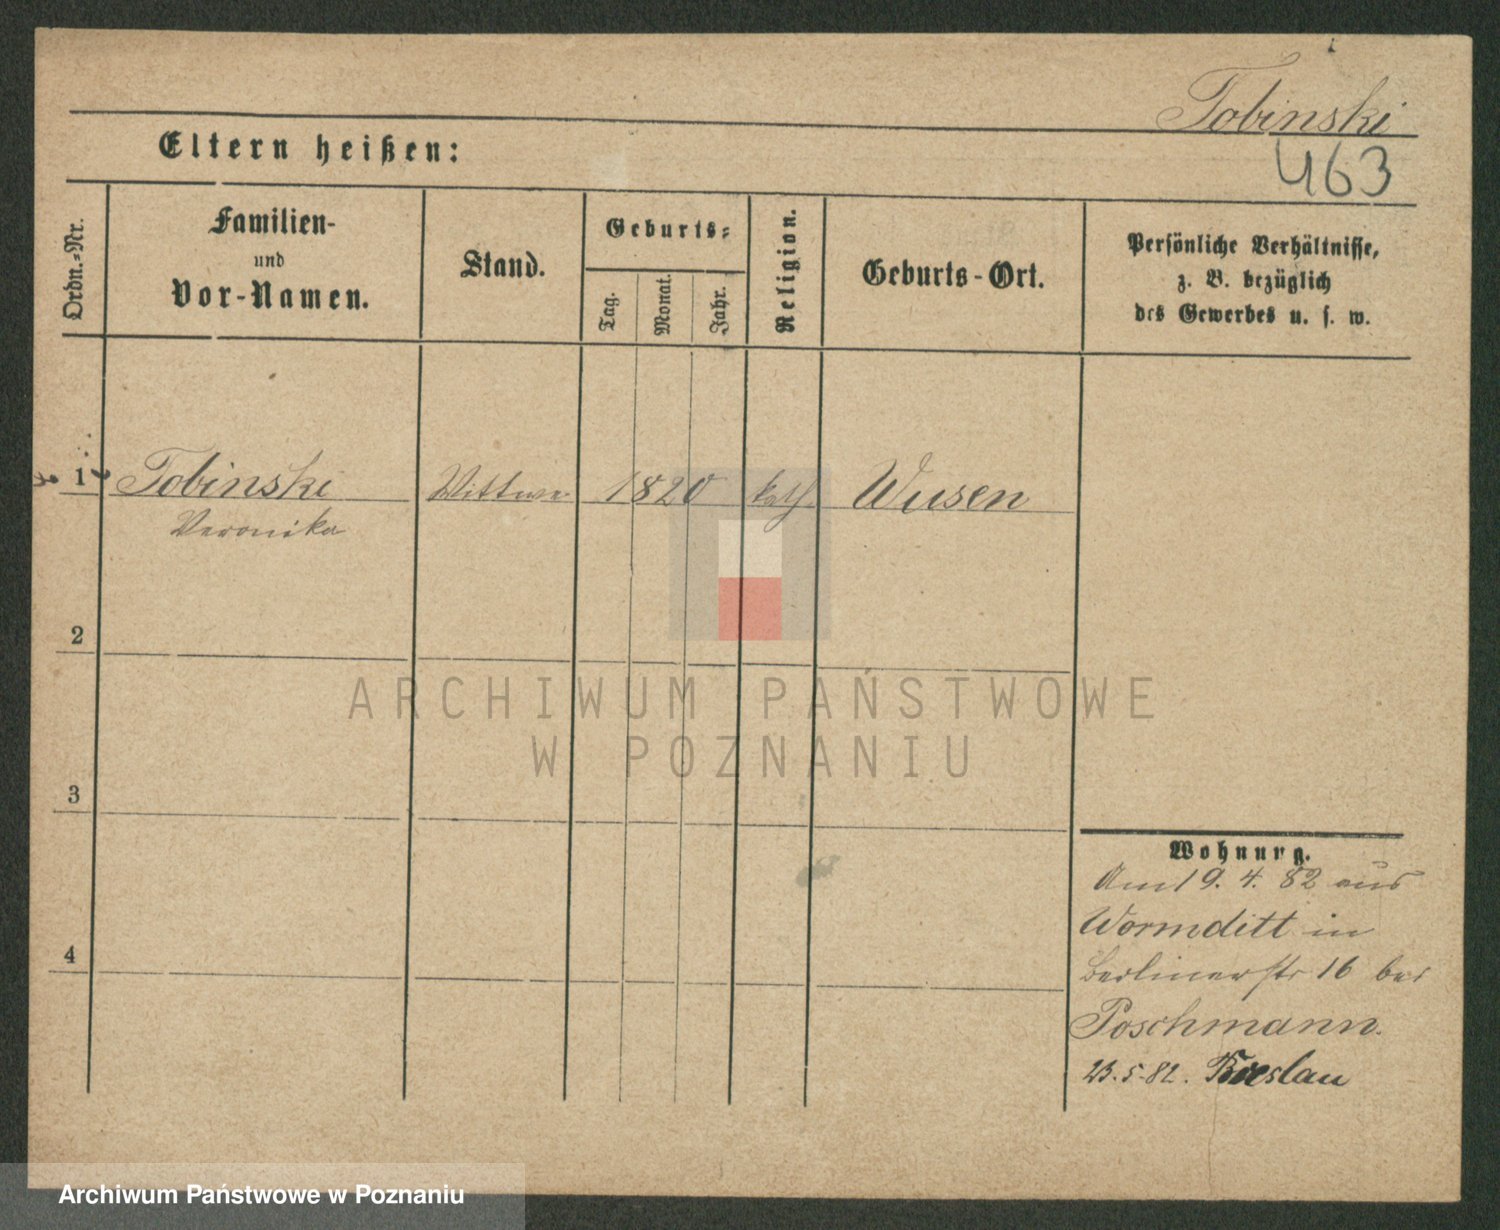 Tobinski
463
Eltern heißen:
Ordn.-Nr.
Familien-
und
Vor-Namen.
Stand.
Geburts-
Tag.
Monat.
Jahr.
Religion.
Geburts-Ort.
Persönliche Verhältnisse,
z. B. bezüglich
des Gewerbes u. s. w.
1 Tobinski Wittwe 1820 kath Wusen
Veronika
2
3
4
Wohnung.
Am 19. 4. 82 aus
Wormditt in
Berlinerstr 16 bei
Poschmann.
23.5.82. Breslau
ARCHIWUM PAŃSTWOWE
W POZNANIU
Archiwum Państwowe w Poznaniu